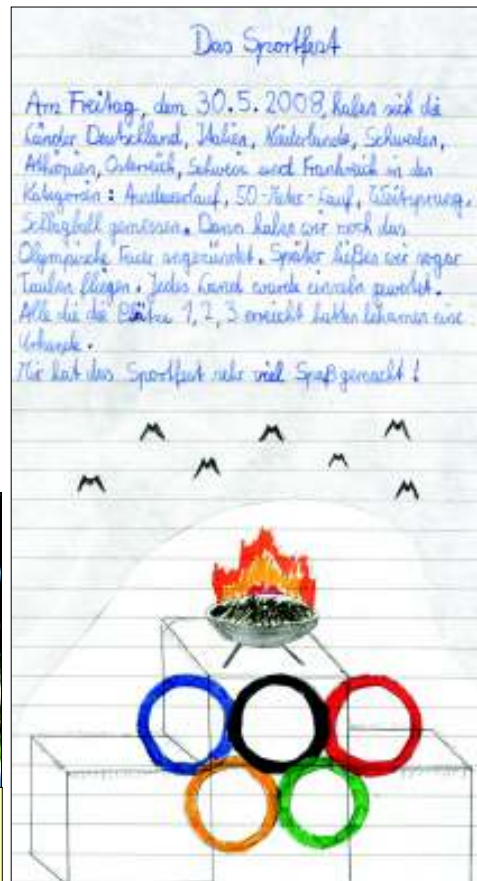 Das Sportfest
Am Freitag, den 30.5.2008, haben sich die
Länder Deutschland, Italien, Niederlande, Schweden,
Äthiopien, Österreich, Schweiz und Frankreich in den
Kategorien: Ausdauerlauf, 50-Meter-Lauf, Weitsprung,
Schlagball gemessen. Dann haben wir noch das
Olympische Feuer angezündet. Später ließen wir sogar
Tauben fliegen. Jedes Land wurde einzeln gewertet.
Alle die die Plätze 1, 2, 3 erreicht hatten bekamen eine
Urkunde.
Mir hat das Sportfest sehr viel Spaß gemacht!